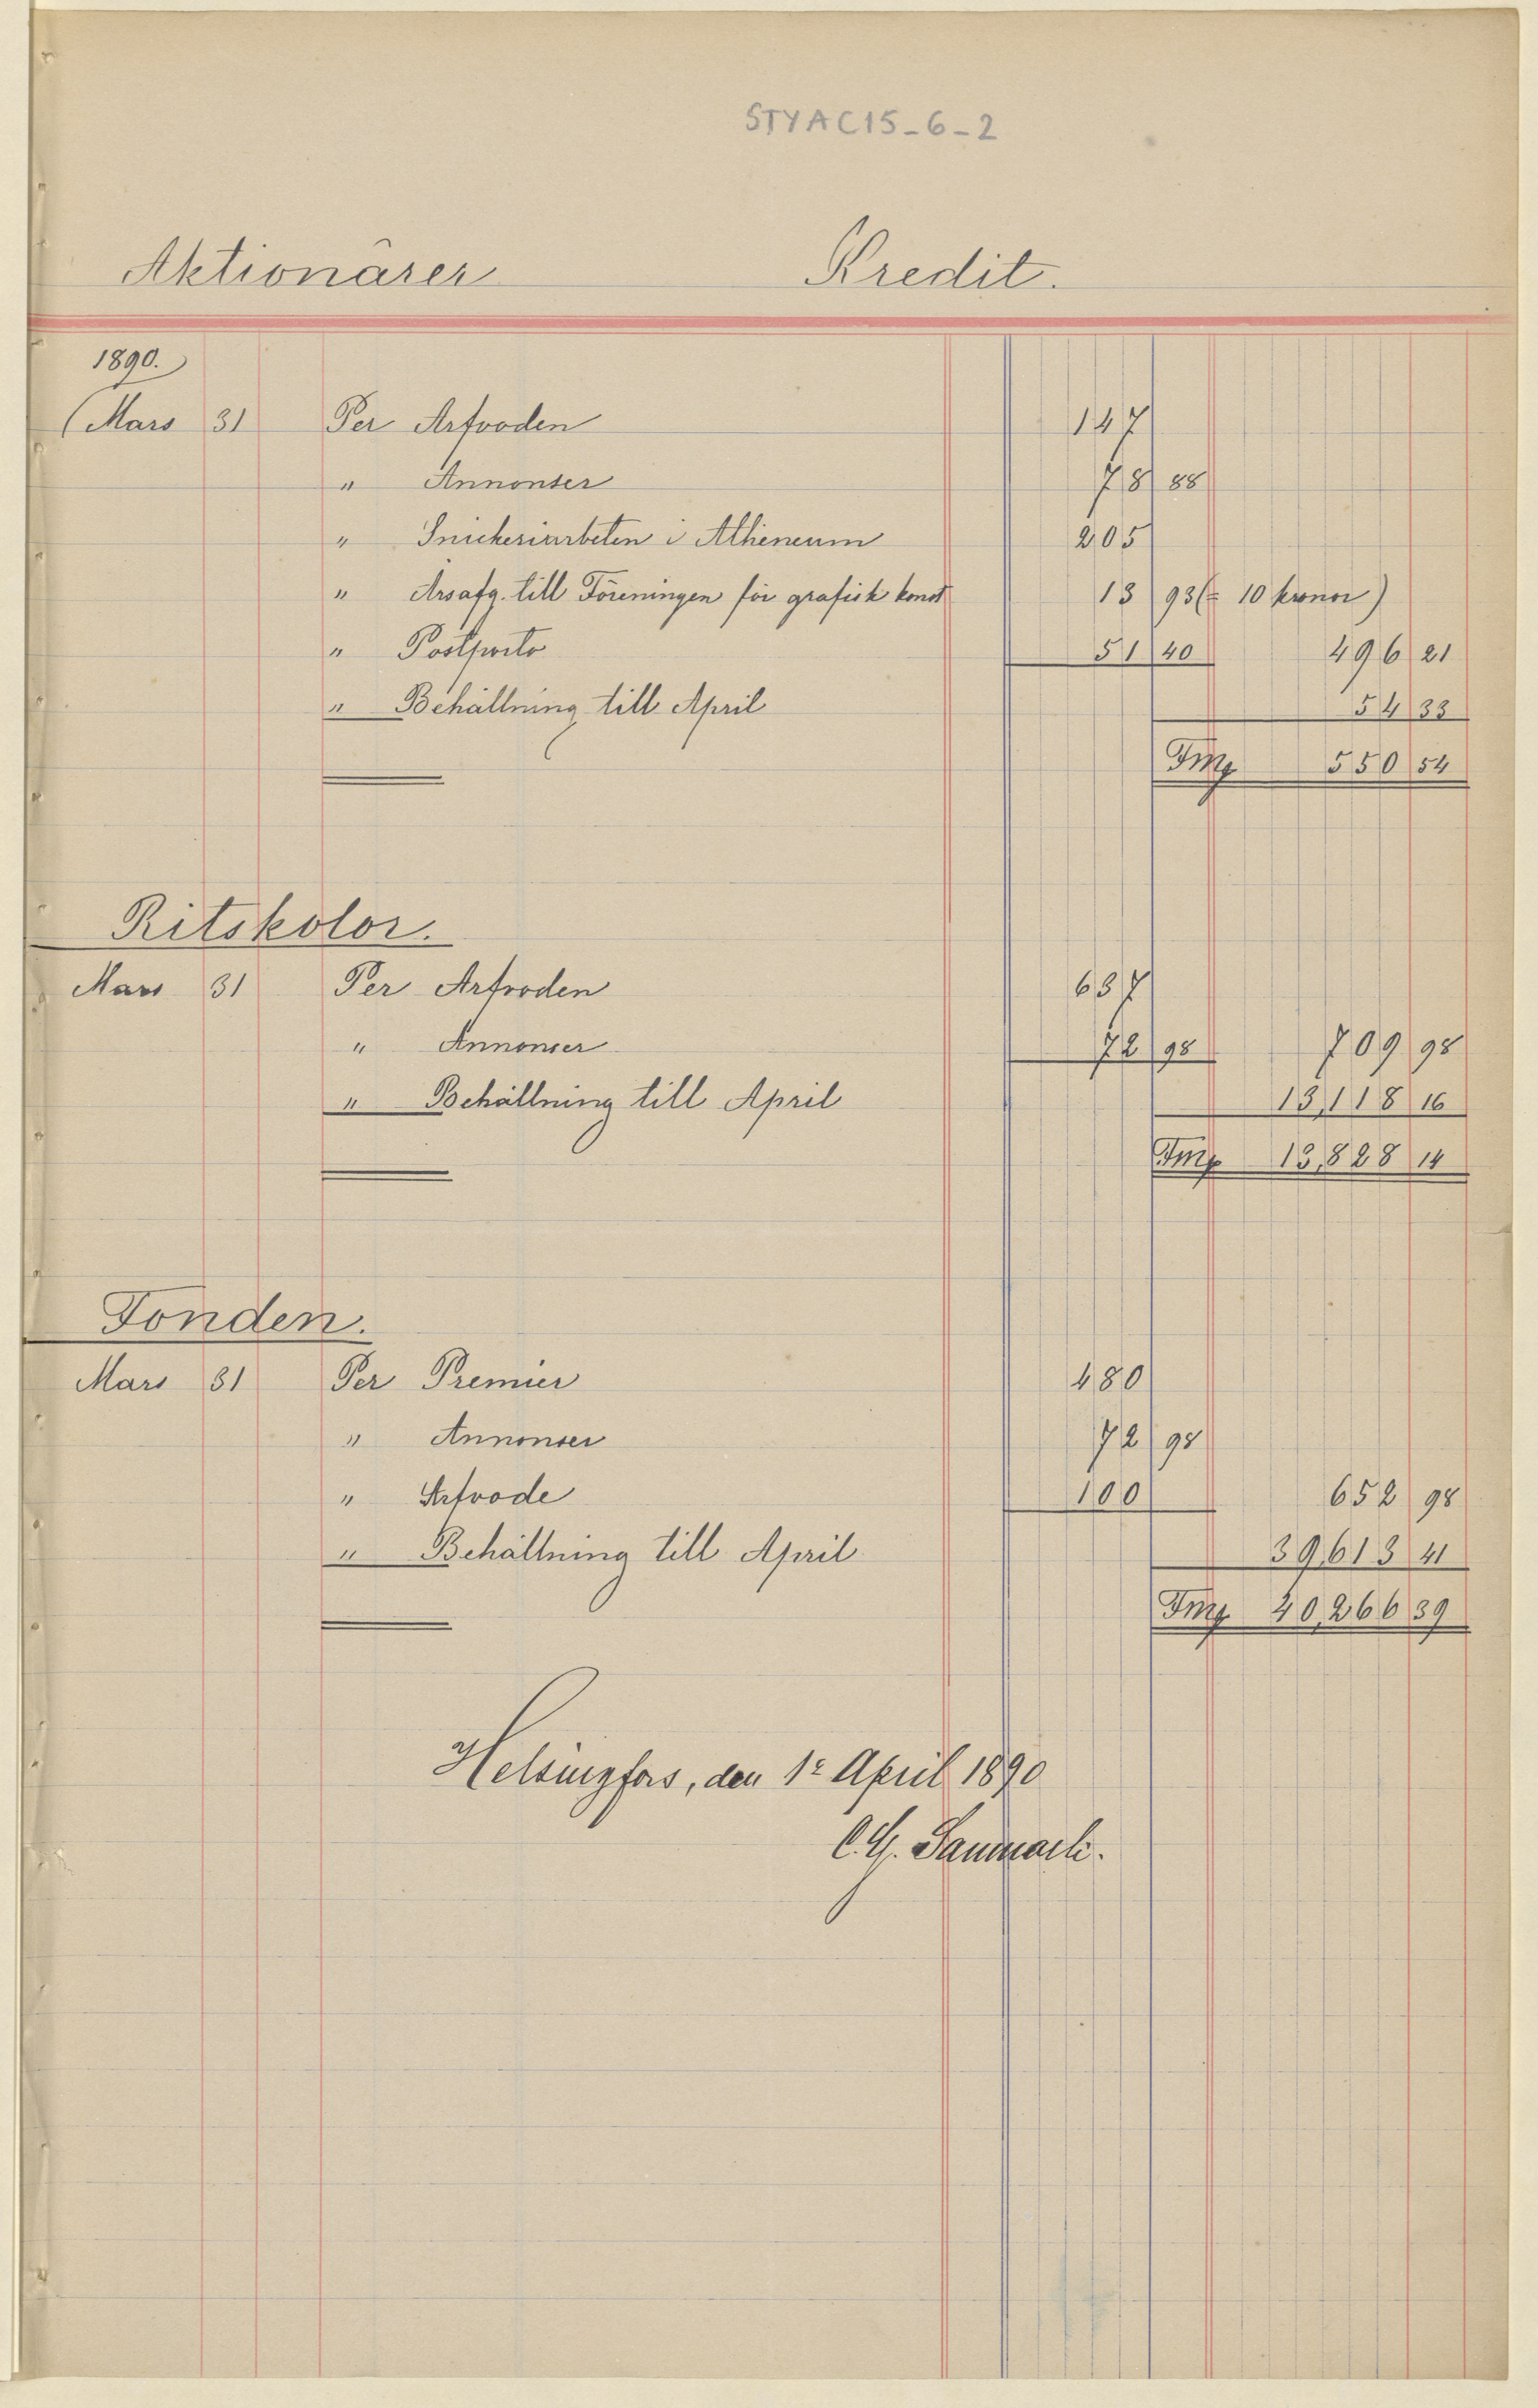 STYAC15-6-2
Aktionärer Kredit.
1890.
Mars 31 Per Arfvoden 147
" Annonser 78 88
" Snickeriarbeten i Atheneum 205
" Årsafg. till Föreningen för grafisk konst 13 93 (= 10 kronor)
" Postporto 51 40 496 21
" Behållning till April 54 33
Fmg 550 54
Ritskolor.
Mars 31 Per Arfvoden 637
" Annonser 72 98 709 98
" Behållning till April 13,118 16
Fmg 13,828 14
Fonden.
Mars 31 Per Premier 480
" Annonser 72 98
" Arfvode 100 652 98
" Behållning till April 39,613 41
Fmg 40,266 39
Helsingfors, den 1e April 1890
C. G. Sanmark.